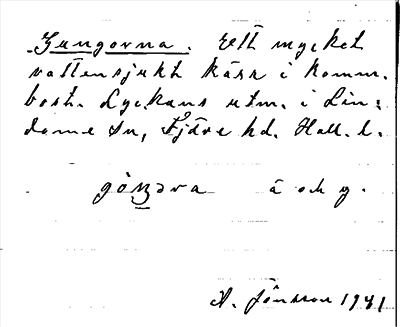 Gungorna. Ett mycket
vattensjukt kärr i komm.
bost. Lyckans utm. i Lin-
dome sn, Fjäre hd. Hall. l.
ä och y.
A. Jönsson 1941